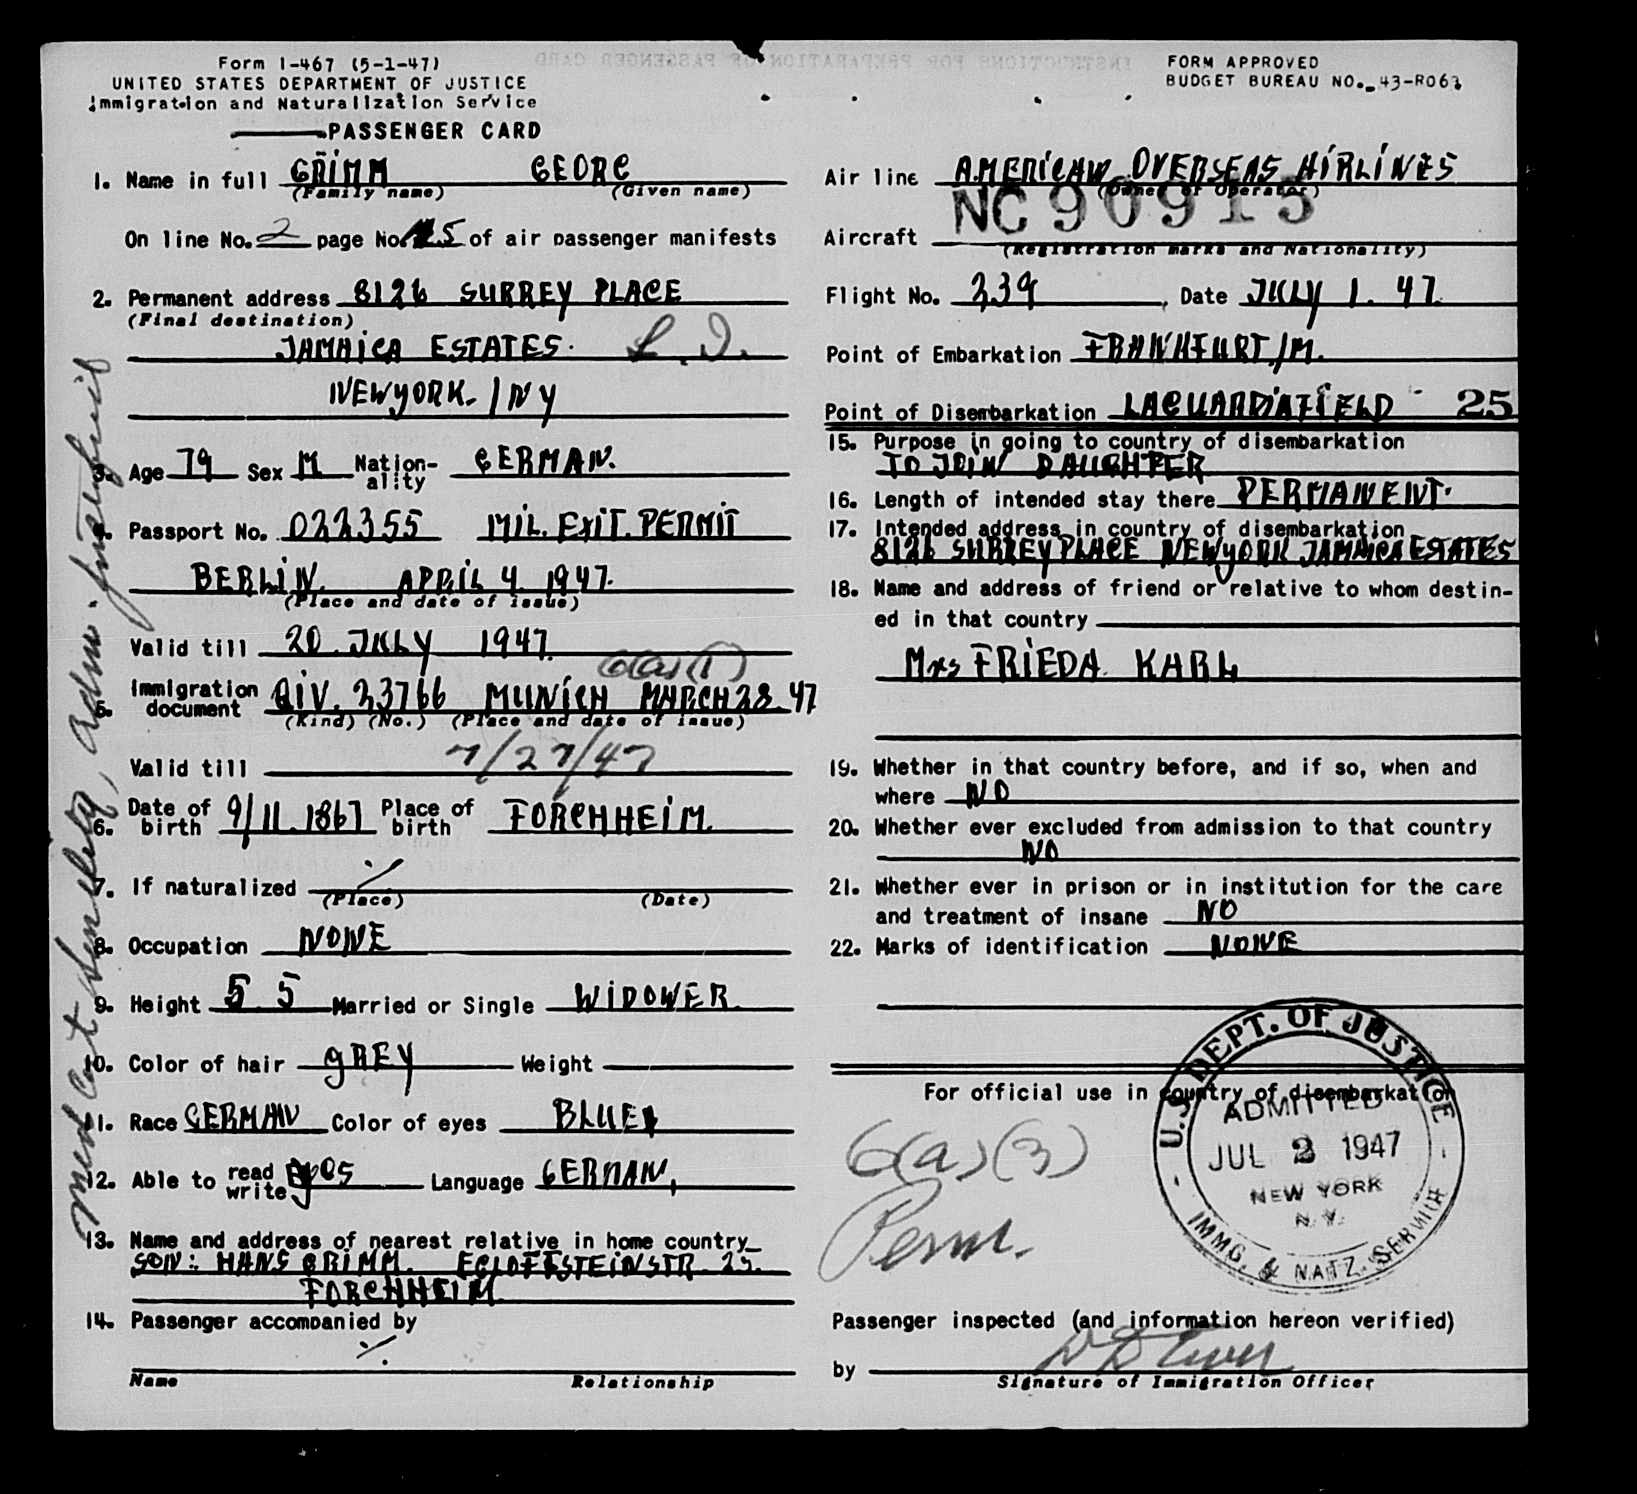 Form I-467 (5-1-47)
UNITED STATES DEPARTMENT OF JUSTICE
Immigration and Naturalization Service
PASSENGER CARD
1. Name in full GRIMM GEORG
(Family name) (Given name)
On line No. 2 page No. 5 of air passenger manifests
2. Permanent address 8126 SURREY PLACE
(Final destination)
JAMAICA ESTATES. L.I.
NEWYORK. / NY
3. Age 79 Sex M Nation-ality GERMAN.
4. Passport No. 022355 MIL. EXIT. PERMIT
BERLIN. APRIL 4. 1947.
(Place and date of issue)
Valid till 20. JULY 1947.
6(a)(1)
5. Immigration document QIV. 23766 MUNICH MARCH 28. 47
(Kind) (No.) (Place and date of issue)
Valid till 7/27/47
6. Date of birth 9/11.1867 Place of birth FORCHHEIM.
7. If naturalized ⁒
(Place) (Date)
8. Occupation NONE
9. Height 5 5 Married or Single WIDOWER.
10. Color of hair gREY Weight
11. Race GERMAN Color of eyes BLUE
12. Able to read write yes Language GERMAN,
13. Name and address of nearest relative in home country
SON: HANS GRIMM. EGLOFFSTEINSTR. 25.
FORCHHEIM
14. Passenger accompanied by
⁒
Name Relationship
Med Cert Senility, adm.
FORM APPROVED
BUDGET BUREAU NO. 43-R063
Air line AMERICAN OVERSEAS AIRLINES
(Owner or operator)
Aircraft NC 90915
(Registration marks and Nationality)
Flight No. 239, Date JULY 1. 47.
Point of Embarkation FRANKFURT./M.
Point of Disembarkation LAGUARDIAFIELD 25
15. Purpose in going to country of disembarkation
TO JOIN DAUGHTER
16. Length of intended stay there PERMANENT.
17. Intended address in country of disembarkation
8126 SURREY PLACE NEWYORK JAMAICA ESTATES
18. Name and address of friend or relative to whom destin-
ed in that country
Mrs FRIEDA. KARL
19. Whether in that country before, and if so, when and
where NO
20. Whether ever excluded from admission to that country
NO
21. Whether ever in prison or in institution for the care
and treatment of insane NO
22. Marks of identification NONE
For official use in country of disembarkation
6(a)(3)
Perm.
U.S. DEPT. OF JUSTICE
ADMITTED
JUL 2 1947
NEW YORK
N.Y.
IMMG. & NATZ. SERVICE
Passenger inspected (and information hereon verified)
by
Signature of Immigration Officer